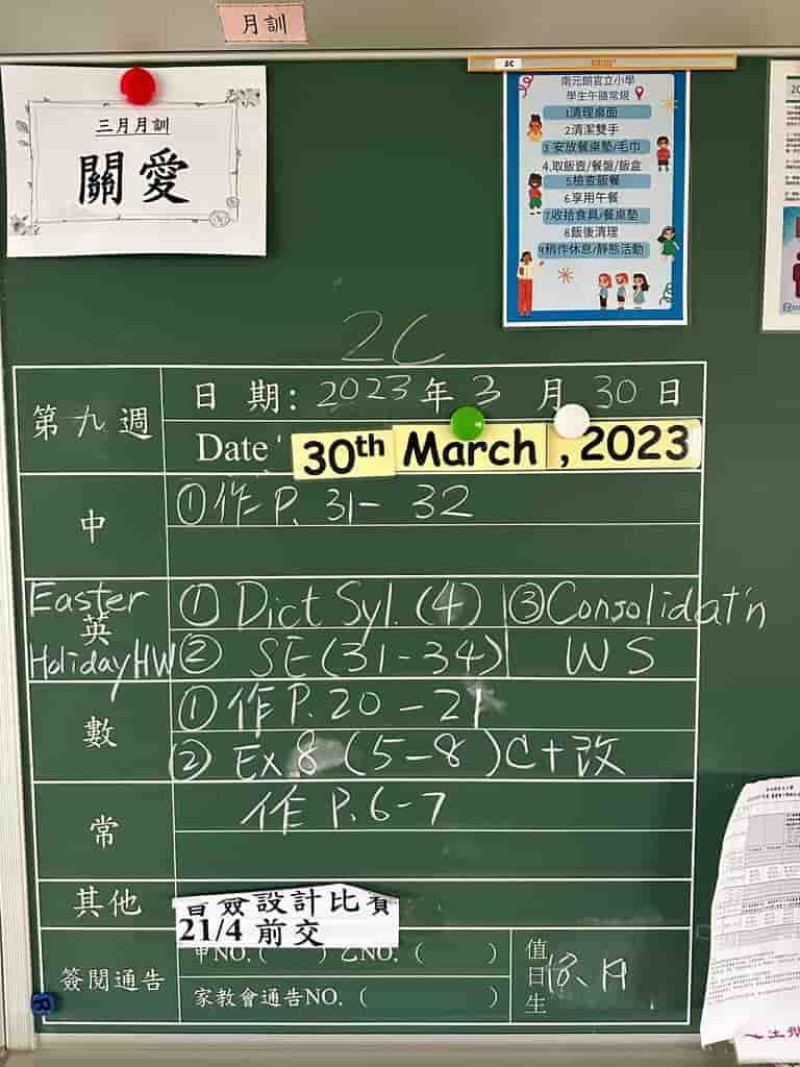 月訓
三月月訓
關愛
2C
南元朗官立小學
學生午膳常規
1清理桌面
2.清潔雙手
3.安放餐桌墊/毛巾
4.取飯壺/餐盤/飯盒
5檢查飯餐
6.享用午餐
7.收拾食具/餐桌墊
8飯後清理
9稍作休息/靜態活動
2C
第九週
日期:2023年3月30日
Date
30th March, 2023
中
①作P. 31- 32
Easter
英
Holiday HW
① Dict Syl. (4)
② SE (31-34)
③ Consolidat'n
WS
數
①作P.20-21
② Ex 8 (5-8) C+改
常
作P.6-7
其他
設計比賽
21/4 前交
簽閱通告
甲NO. ( ) 乙NO. ( )
家教會通告NO. ( )
值日生
18、19